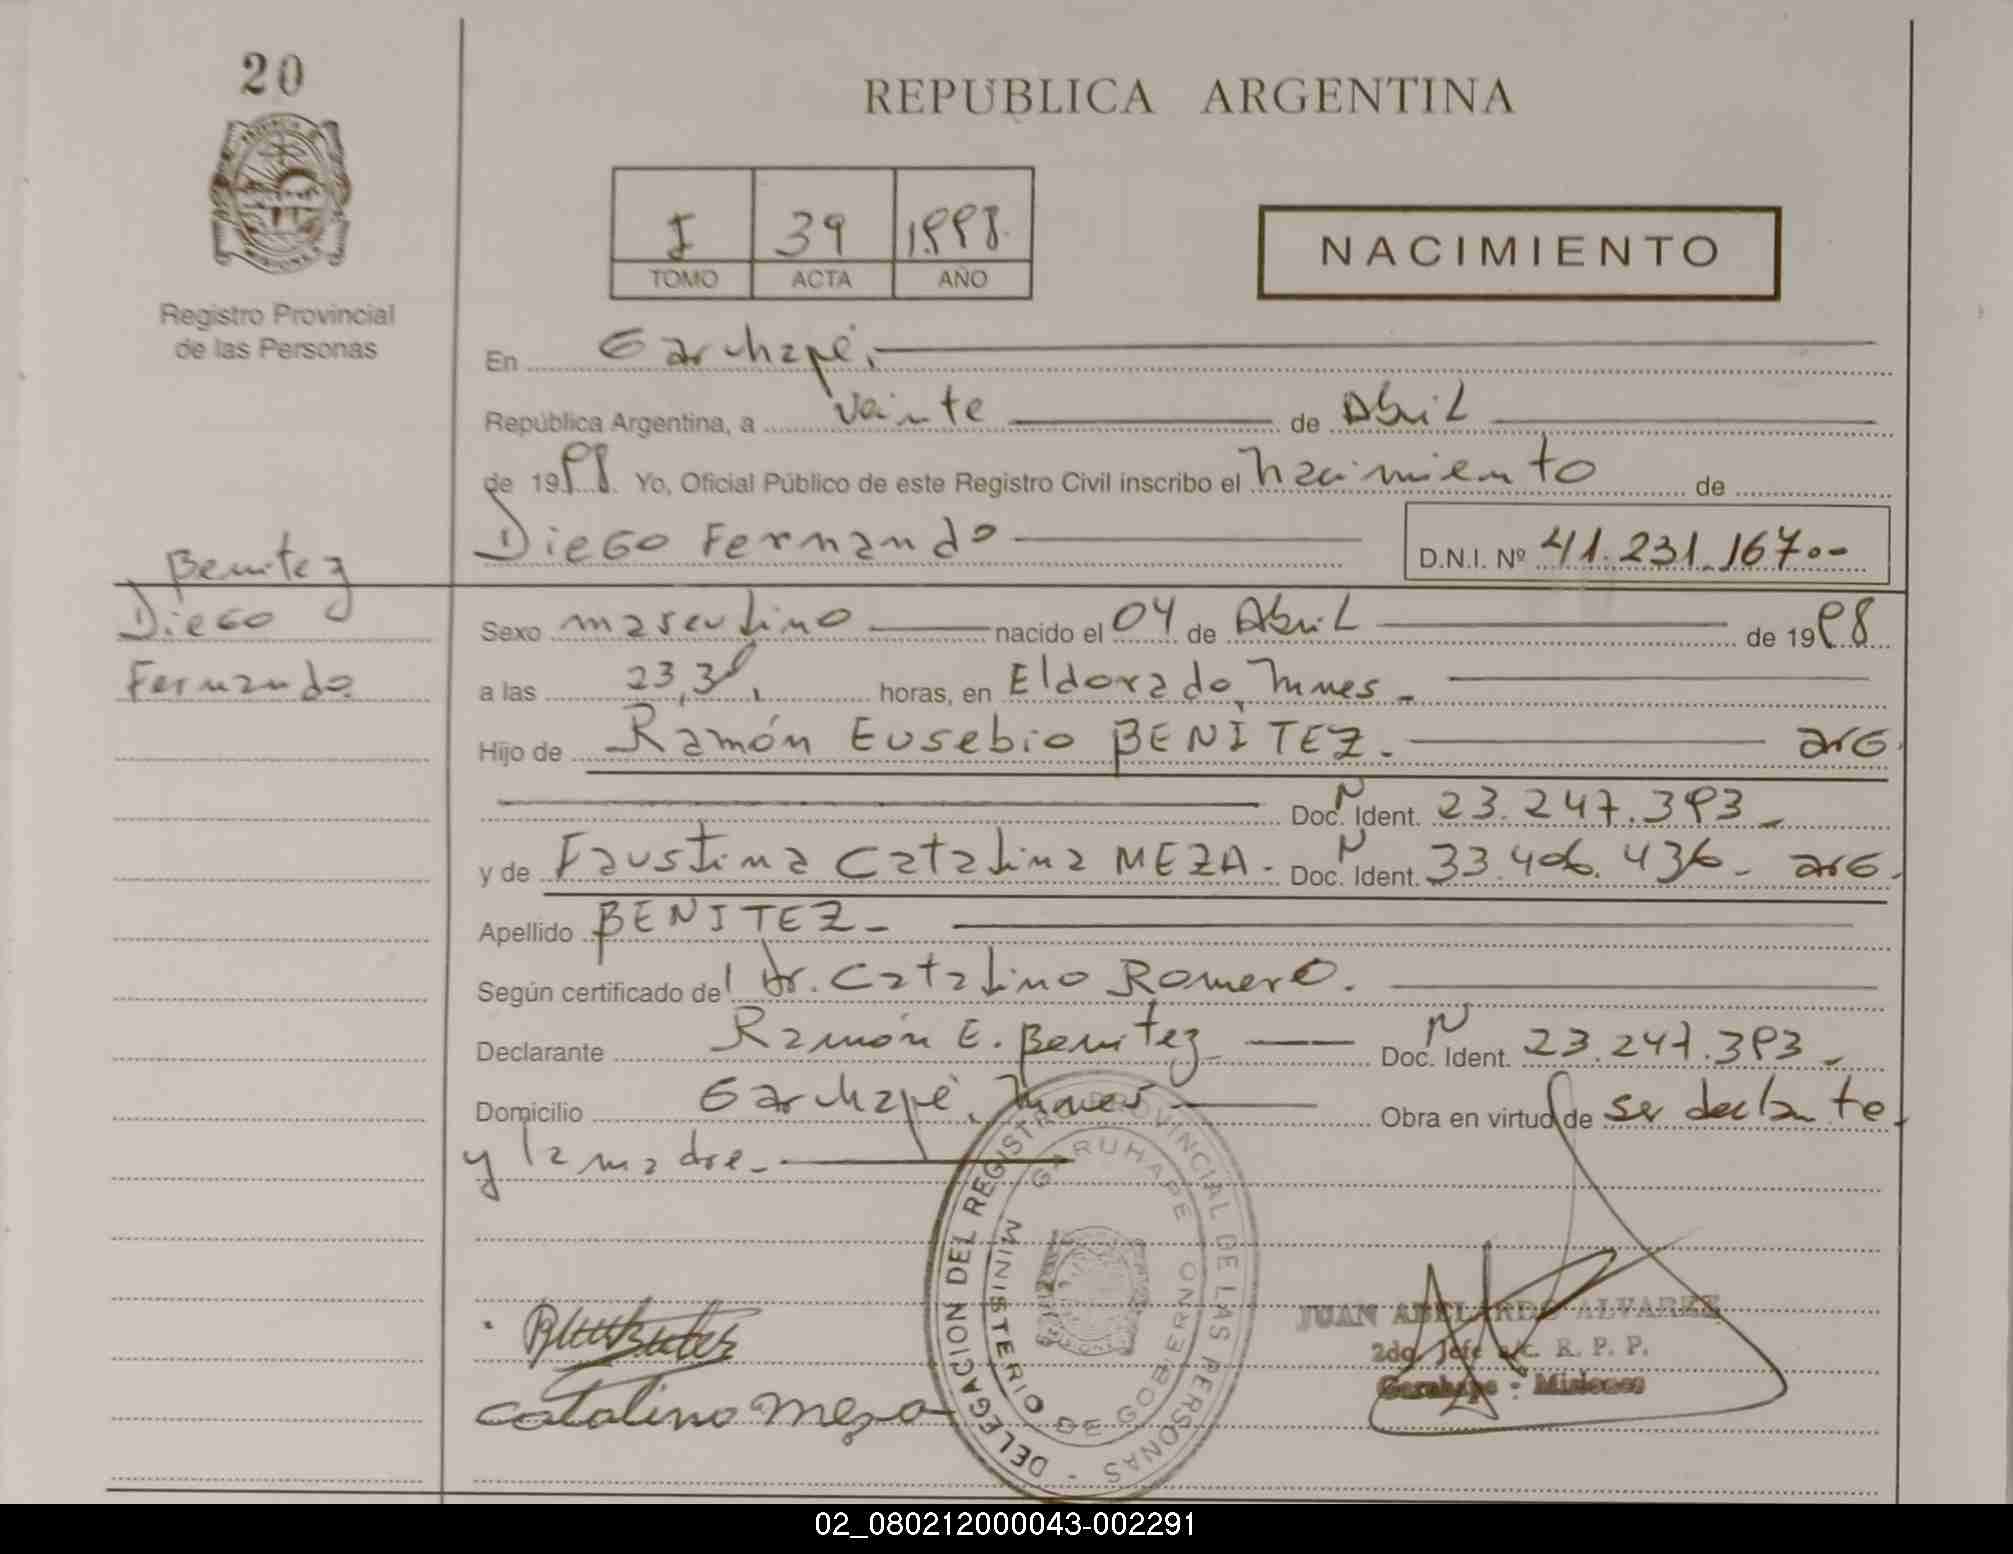 20
REPUBLICA ARGENTINA
I 39 1998.
TOMO ACTA AÑO
NACIMIENTO
Registro Provincial
de las Personas
En Garuhapé.
República Argentina, a Veinte de Abril
de 1998. Yo, Oficial Público de este Registro Civil inscribo el nacimiento de
Diego Fernando D.N.I. Nº 41.231.167.-
Benitez
Diego
Fernando
Sexo masculino nacido el 04 de Abril de 1998
a las 23,30, horas, en Eldorado, Mnes.
Hijo de Ramón Eusebio BENÍTEZ. arg.
Doc. N Ident. 23.247.393_
y de Faustina Catalina MEZA. Doc. N Ident. 33.406.436_ arg.
Apellido BENITEZ_
Según certificado del Dr. Catalino Romero.
Declarante Ramón E. Benitez Doc. N Ident. 23.247.393_
Domicilio Garuhapé, Mnes Obra en virtud de ser declante
y la madre_
DELEGACION DEL REGISTRO PROVINCIAL DE LAS PERSONAS -
GARUHAPE
MINISTERIO DE GOBIERNO
catalina meza
JUAN ABELARDO ALVAREZ
2do. Jefe a/c. R. P. P.
Garuhape - Misiones
02_080212000043-002291